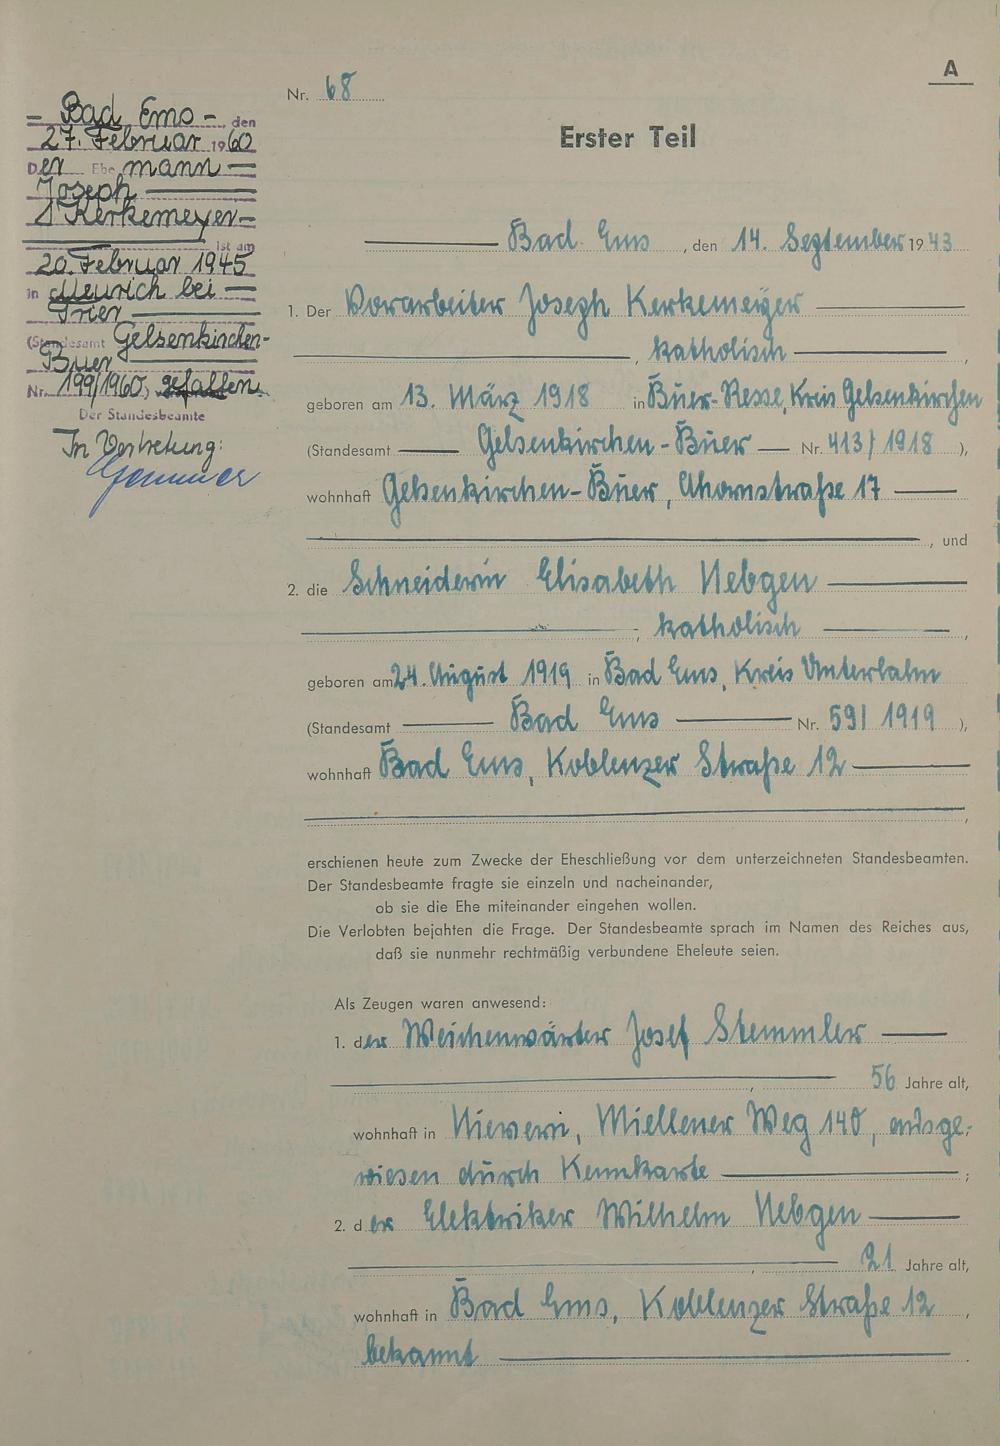 A
Nr. 68
Erster Teil
Bad Ems, den 14. September 1943
1. Der Vorarbeiter Joseph Kerkemeyer
, katholisch,
geboren am 13. März 1918 in Buer-Resse, Kreis Gelsenkirchen
(Standesamt Gelsenkirchen-Buer Nr. 413/1918),
wohnhaft Gelsenkirchen-Buer, Ahornstraße 17
, und
2. die Schneiderin Elisabeth Nebgen
, katholisch,
geboren am 24. August 1919 in Bad Ems, Kreis Unterlahn
(Standesamt Bad Ems Nr. 59/1919),
wohnhaft Bad Ems, Koblenzer Straße 12
,
erschienen heute zum Zwecke der Eheschließung vor dem unterzeichneten Standesbeamten.
Der Standesbeamte fragte sie einzeln und nacheinander,
ob sie die Ehe miteinander eingehen wollen.
Die Verlobten bejahten die Frage. Der Standesbeamte sprach im Namen des Reiches aus,
daß sie nunmehr rechtmäßig verbundene Eheleute seien.
Als Zeugen waren anwesend:
1. der Weichenwärter Josef Stemmler
, 56 Jahre alt,
wohnhaft in Nievern, Miellener Weg 140, ausge-
wiesen durch Kennkarte ;
2. der Elektriker Wilhelm Nebgen
, 21 Jahre alt,
wohnhaft in Bad Ems, Koblenzer Straße 12,
bekannt
- Bad Ems -, den
27. Februar 1960
Der Ehemann
Joseph
Kerkemeyer
ist am
20. Februar 1945
in Meurich bei
Trier
(Standesamt Gelsenkirchen-
Buer
Nr. 199/1960) gefallen.
Der Standesbeamte
In Vertretung: